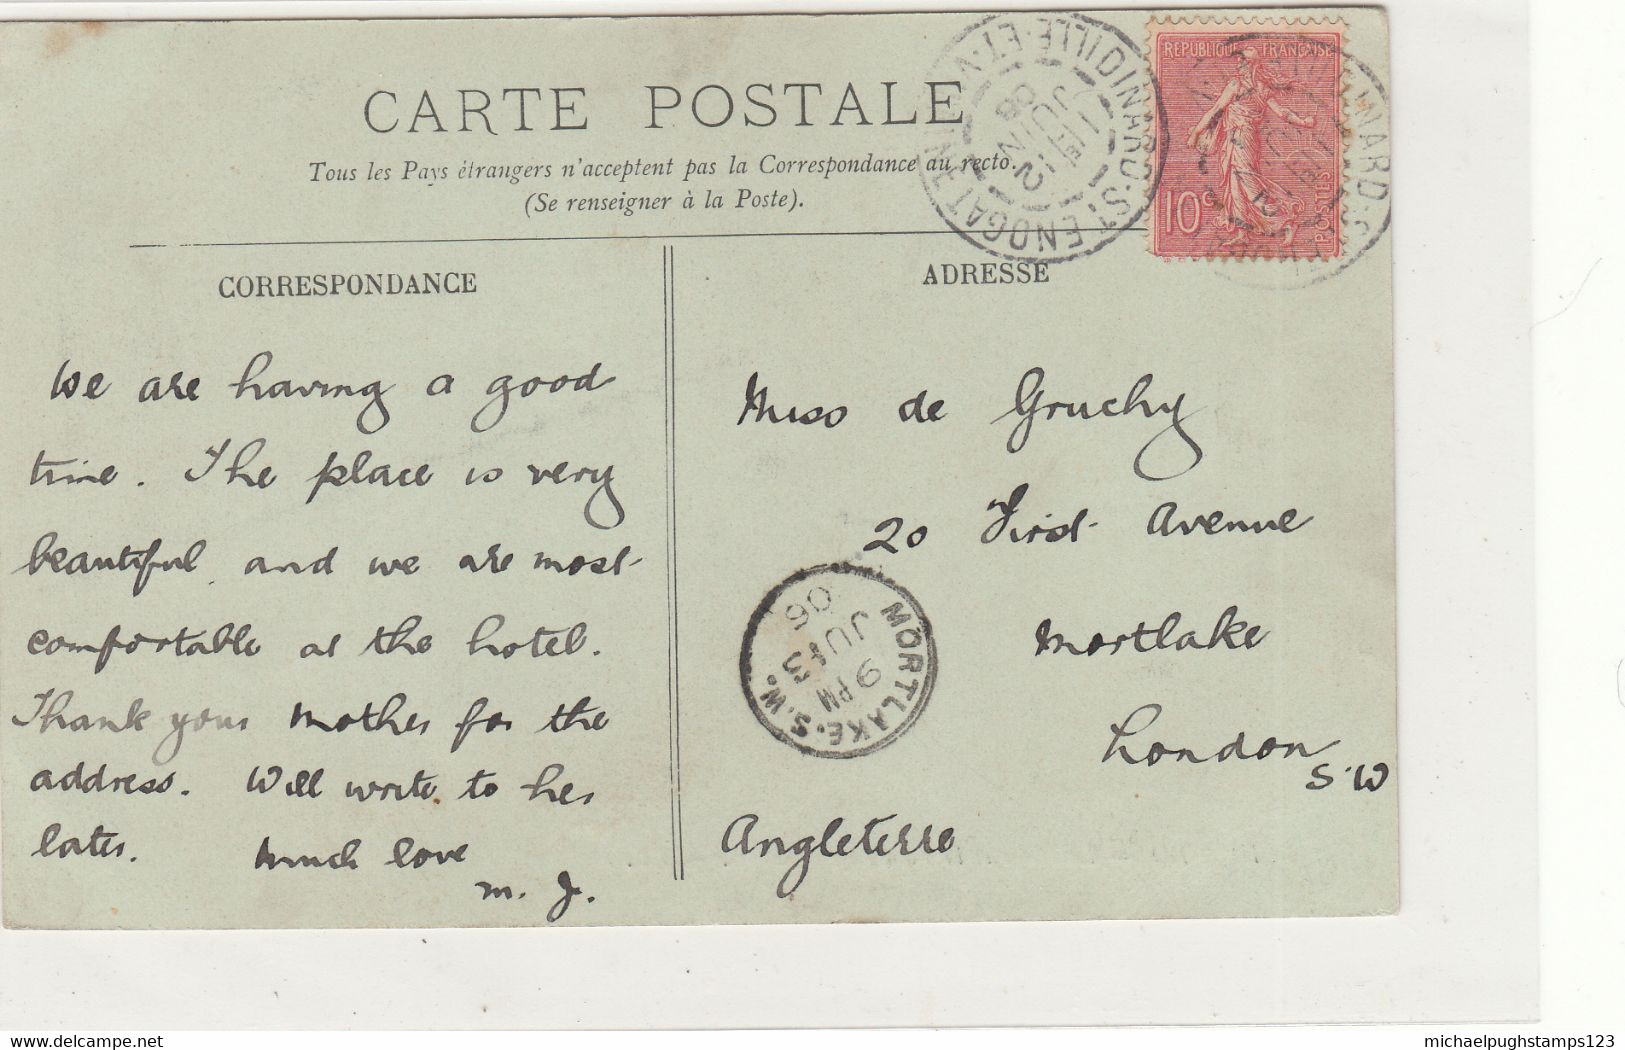 CARTE POSTALE
Tous les Pays étrangers n'acceptent pas la Correspondance au recto.
(Se renseigner à la Poste).
CORRESPONDANCE
We are having a good
time. The place is very
beautiful and we are most
comfortable at the hotel.
Thank your Mother for the
address. Will write to her
later. Much love
M. J.
ADRESSE
Miss de Gruchy
20 First Avenue
Mortlake
London
S.W
Angleterre
REPUBLIQUE FRANÇAISE
10c
POSTES
DINARD-ST ENOGAT ILLE-ET-V
12
JUIN
06
MORTLAKE.S.W.
9 PM
JU 13
06
michaelpughstamps123